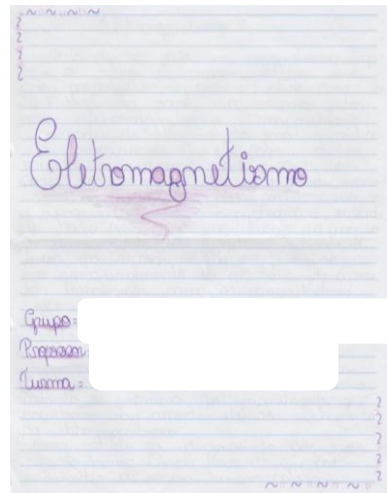 Eletromagnetismo
Grupo:
Professor:
Turma: